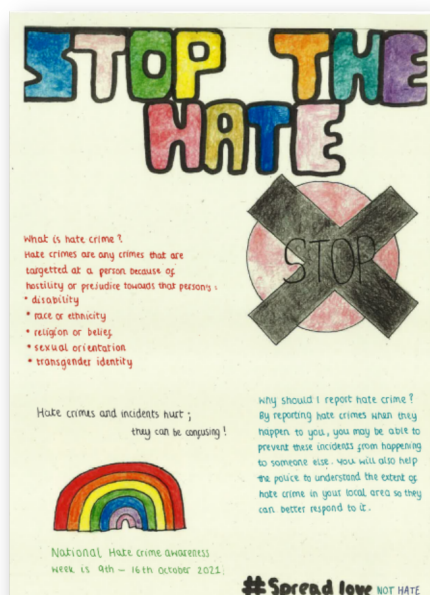 STOP THE
HATE
STOP
What is hate crime?
Hate crimes are any crimes that are
targetted at a person because of
hostility or prejudice towards that person's:
* disability
* race or ethnicity
* religion or belief
* sexual orientation
* transgender identity
Hate crimes and incidents hurt;
they can be confusing!
Why should I report hate crime?
By reporting hate crimes when they
happen to you, you may be able to
prevent these incidents from happening
to someone else. You will also help
the police to understand the extent of
hate crime in your local area so they
can better respond to it.
National Hate crime awareness
week is 9th - 16th October 2021.
#Spread love NOT HATE